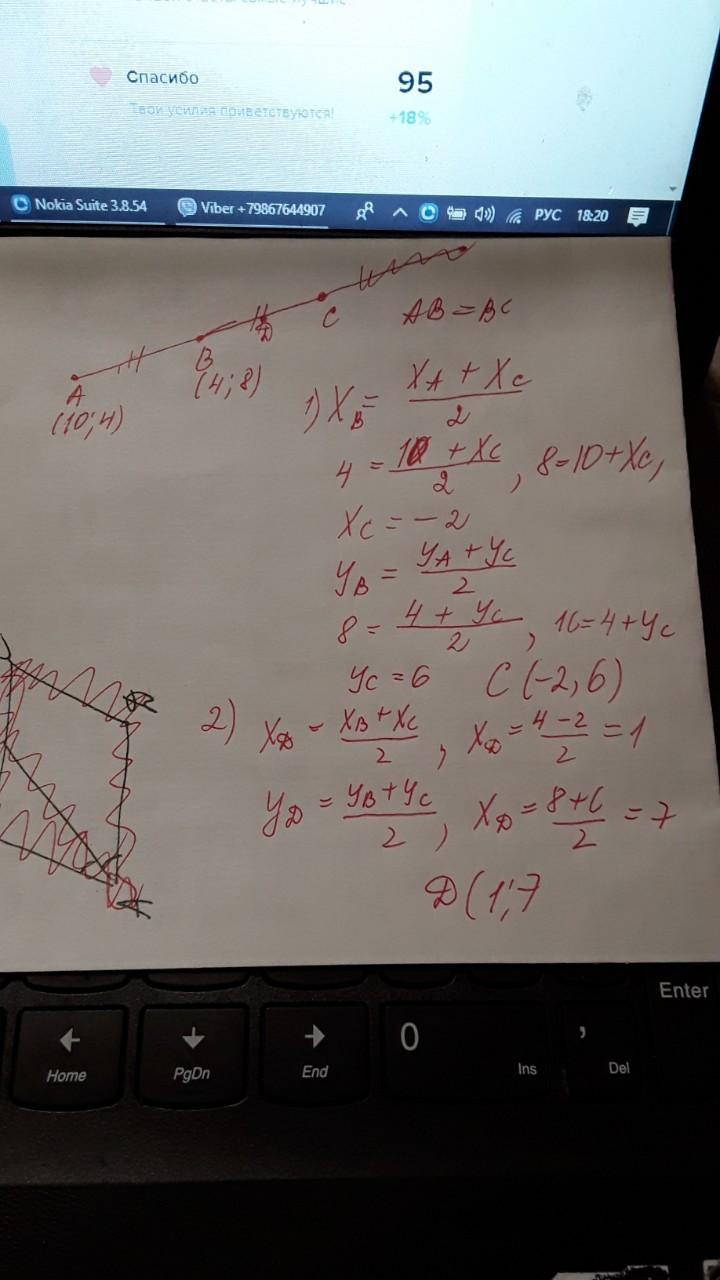 Спасибо 95
Твои усилия приветствуются! +18%
Nokia Suite 3.8.54 Viber +79867644907 РУС 18:20
A B D C AB = BC
(10;4) (4;8)
1) X_B = (X_A + X_C)/2
4 = (10 + X_C)/2, 8=10+X_C,
X_C = -2
y_B = (y_A + y_C)/2
8 = (4 + y_C)/2, 16=4+y_C
y_C = 6 C(-2,6)
2) X_D = (X_B+X_C)/2, X_D = (4-2)/2 = 1
y_D = (y_B+y_C)/2, X_D = (8+6)/2 = 7
D(1;7
Enter
0
,
Home PgDn End Ins Del